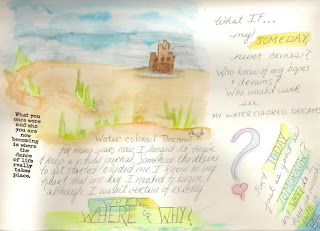 What IF...
my SOMEDAY
never comes?
Who know of my hopes
& dreams?
Who would ever
see
MY WATER COLORED DREAMS
What you
once were
and who
you are
now
becoming
is where
the
dance
of life
really
takes
place.
Water colored Dreams
For many years now I longed to begin
keep a visual journal. Somehow the desire
to get started eluded me. I knew in my
heart that one day I needed to begin,
although I wasn't certain of exactly
WHEN
WHERE OR WHY?
?
Isn't TODAY
just as good